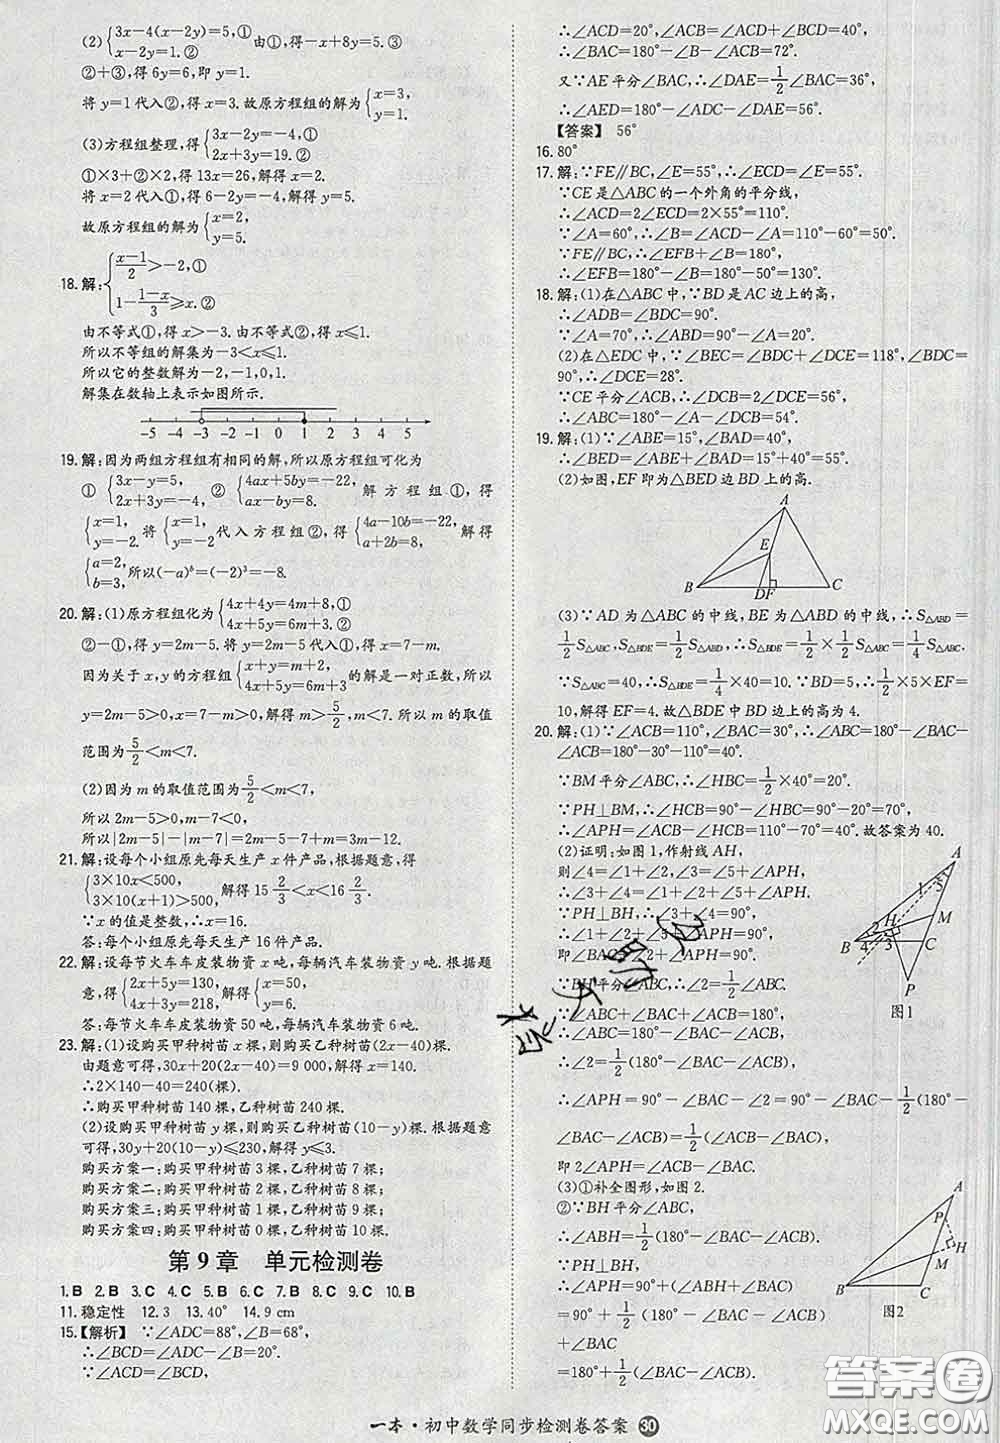 (2){3x-4(x-2y)=5,① x-2y=1.② 由①,得-x+8y=5.③
②+③,得6y=6,即y=1.
将y=1代入②,得x=3.故原方程组的解为{x=3, y=1.
(3)方程组整理,得{3x-2y=-4,① 2x+3y=19.②
①×3+②×2,得13x=26,解得x=2.
将x=2代入①,得6-2y=-4,解得y=5.
故原方程组的解为{x=2, y=5.
18.解:{(x-1)/2>-2,① 1-(1-x)/3≥x.②
由不等式①,得x>-3.由不等式②,得x≤1.
所以不等式组的解集为-3<x≤1.
所以它的整数解为-2,-1,0,1.
解集在数轴上表示如图所示.
-5 -4 -3 -2 -1 0 1 2 3 4 5
19.解:因为两组方程组有相同的解,所以原方程组可化为
①{3x-y=5, 2x+3y=-4, ②{4ax+5by=-22, ax-by=8, 解方程组①,得
{x=1, y=-2. 将{x=1, y=-2代入方程组②,得{4a-10b=-22, a+2b=8, 解得
{a=2, b=3,所以(-a)ᵇ=(-2)³=-8.
20.解:(1)原方程组化为{4x+4y=4m+8,① 4x+5y=6m+3.②
②-①,得y=2m-5.将y=2m-5代入①,得x=7-m.
因为关于x,y的方程组{x+y=m+2, 4x+5y=6m+3的解是一对正数,所以
y=2m-5>0,x=7-m>0,解得m>5/2,m<7.所以m的取值
范围为5/2<m<7.
(2)因为m的取值范围为5/2<m<7,
所以2m-5>0,m-7<0,
所以|2m-5|-|m-7|=2m-5-7+m=3m-12.
21.解:设每个小组原先每天生产x件产品,根据题意,得
{3×10x<500, 3×10(x+1)>500,解得15 2/3<x<16 2/3.
∵x的值是整数,∴x=16.
答:每个小组原先每天生产16件产品.
22.解:设每节火车车皮装物资x吨,每辆汽车装物资y吨.根据题
意,得{2x+5y=130, 4x+3y=218,解得{x=50, y=6.
答:每节火车车皮装物资50吨,每辆汽车装物资6吨.
23.解:(1)设购买甲种树苗x棵,则购买乙种树苗(2x-40)棵.
由题意可得,30x+20(2x-40)=9 000,解得x=140.
∴2×140-40=240(棵).
∴购买甲种树苗140棵,乙种树苗240棵.
(2)设购买甲种树苗y棵,则购买乙种树苗(10-y)棵.根据题意
可得,30y+20(10-y)≤230,解得y≤3.
购买方案一:购买甲种树苗3棵,乙种树苗7棵;
购买方案二:购买甲种树苗2棵,乙种树苗8棵;
购买方案三:购买甲种树苗1棵,乙种树苗9棵;
购买方案四:购买甲种树苗0棵,乙种树苗10棵.
第9章 单元检测卷
1.B 2.B 3.C 4.C 5.B 6.C 7.B 8.C 9.C 10.B
11.稳定性 12.3 13.40° 14.9 cm
15.【解析】 ∵∠ADC=88°,∠B=68°,
∴∠BCD=∠ADC-∠B=20°.
∵∠ACD=∠BCD,
∴∠ACD=20°,∠ACB=∠ACD+∠BCD=40°,
∴∠BAC=180°-∠B-∠ACB=72°.
又∵AE平分∠BAC,∴∠DAE=1/2∠BAC=36°,
∴∠AED=180°-∠ADC-∠DAE=56°.
【答案】 56°
16.80°
17.解:∵FE∥BC,∠E=55°,∴∠ECD=∠E=55°.
∵CE是△ABC的一个外角的平分线,
∴∠ACD=2∠ECD=2×55°=110°.
∵∠A=60°,∴∠B=∠ACD-∠A=110°-60°=50°.
∵FE∥BC,∴∠EFB+∠B=180°,
∴∠EFB=180°-∠B=180°-50°=130°.
18.解:(1)在△ABC中,∵BD是AC边上的高,
∴∠ADB=∠BDC=90°.
∵∠A=70°,∴∠ABD=90°-∠A=20°.
(2)在△EDC中,∵∠BEC=∠BDC+∠DCE=118°,∠BDC=
90°,∴∠DCE=28°.
∵CE平分∠ACB,∴∠DCB=2∠DCE=56°,
∴∠ABC=180°-∠A-∠DCB=54°.
19.解:(1)∵∠ABE=15°,∠BAD=40°,
∴∠BED=∠ABE+∠BAD=15°+40°=55°.
(2)如图,EF即为△BED边BD上的高.
A
E
B DF C
(3)∵AD为△ABC的中线,BE为△ABD的中线,∴S△ABD=
1/2 S△ABC,S△BDE=1/2 S△ABD,∴S△BDE=1/2×1/2 S△ABC=1/4 S△ABC.
∵S△ABC=40,∴S△BDE=1/4×40=10.∵BD=5,∴1/2×5×EF=
10,解得EF=4.故△BDE中BD边上的高为4.
20.解:(1)∵∠ACB=110°,∠BAC=30°,∴∠ABC=180°-∠BAC-
∠ACB=180°-30°-110°=40°.
∵BM平分∠ABC,∴∠HBC=1/2×40°=20°.
∵PH⊥BM,∴∠HCB=90°-∠HBC=90°-20°=70°,
∴∠APH=∠ACB-∠HCB=110°-70°=40°.故答案为40.
(2)证明:如图1,作射线AH,
则∠4=∠1+∠2,∠3=∠5+∠APH,
∴∠3+∠4=∠1+∠2+∠5+∠APH.
∵PH⊥BH,∴∠3+∠4=90°,
∴∠1+∠2+∠5+∠APH=90°.
∵BH平分∠ABC,∴∠2=1/2∠ABC.
∵∠ABC+∠BAC+∠ACB=180°,
∴∠ABC=180°-∠BAC-∠ACB,
∴∠2=1/2(180°-∠BAC-∠ACB),
∴∠APH=90°-∠BAC-∠2=90°-∠BAC-1/2(180°-
∠BAC-∠ACB)=1/2(∠ACB-∠BAC),
即2∠APH=∠ACB-∠BAC.
A
1 5
2 H M
B 4 3 C
P
图1
(3)①补全图形,如图2.
②∵BH平分∠ABC,
∴∠ABH=1/2∠ABC
=1/2(180°-∠BAC-∠ACB),
∴∠APH=∠AHP+(∠ABH+∠BAC)
=90°+1/2(180°-∠BAC-∠ACB)
+∠BAC
=180°+1/2(∠BAC-∠ACB).
A
P
H
M
B C
图2
一本·初中数学同步检测卷答案 30
答案圈
MXQE.COM